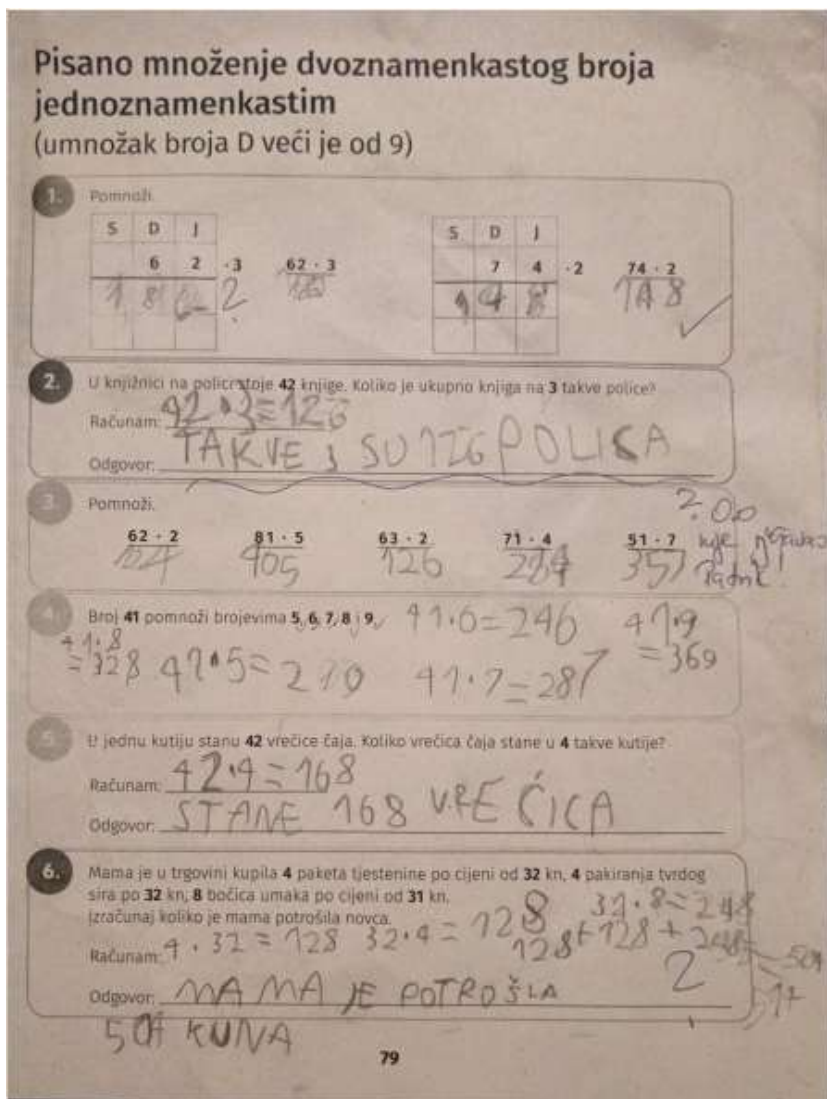 Pisano množenje dvoznamenkastog broja
jednoznamenkastim
(umnožak broja D veći je od 9)
1. Pomnoži.
S D J
6 2 · 3
1 8 2
?
62 · 3
S D J
7 4 · 2
1 4 8
74 · 2
148
2. U knjižnici na polici stoje 42 knjige. Koliko je ukupno knjiga na 3 takve police?
Računam: 42 · 3 = 126
Odgovor: TAKVE 3 SU 126 POLICA
3. Pomnoži.
62 · 2 81 · 5 63 · 2 71 · 4 51 · 7
124 405 126 284 357
?
4. Broj 41 pomnoži brojevima 5, 6, 7, 8 i 9.
41·6=246
41·9
=369
41·8
=328
41·5=210
41·7=287
5. U jednu kutiju stanu 42 vrećice čaja. Koliko vrećica čaja stane u 4 takve kutije?
Računam: 42·4=168
Odgovor: STANE 168 VREĆICA
6. Mama je u trgovini kupila 4 paketa tjestenine po cijeni od 32 kn, 4 pakiranja tvrdog
sira po 32 kn, 8 bočica umaka po cijeni od 31 kn.
Izračunaj koliko je mama potrošila novca.
31·8=248
Računam: 4 · 32 = 128 32·4 = 128
128+128+248=504
2
Odgovor: MAMA JE POTROŠLA
504 KUNA
79